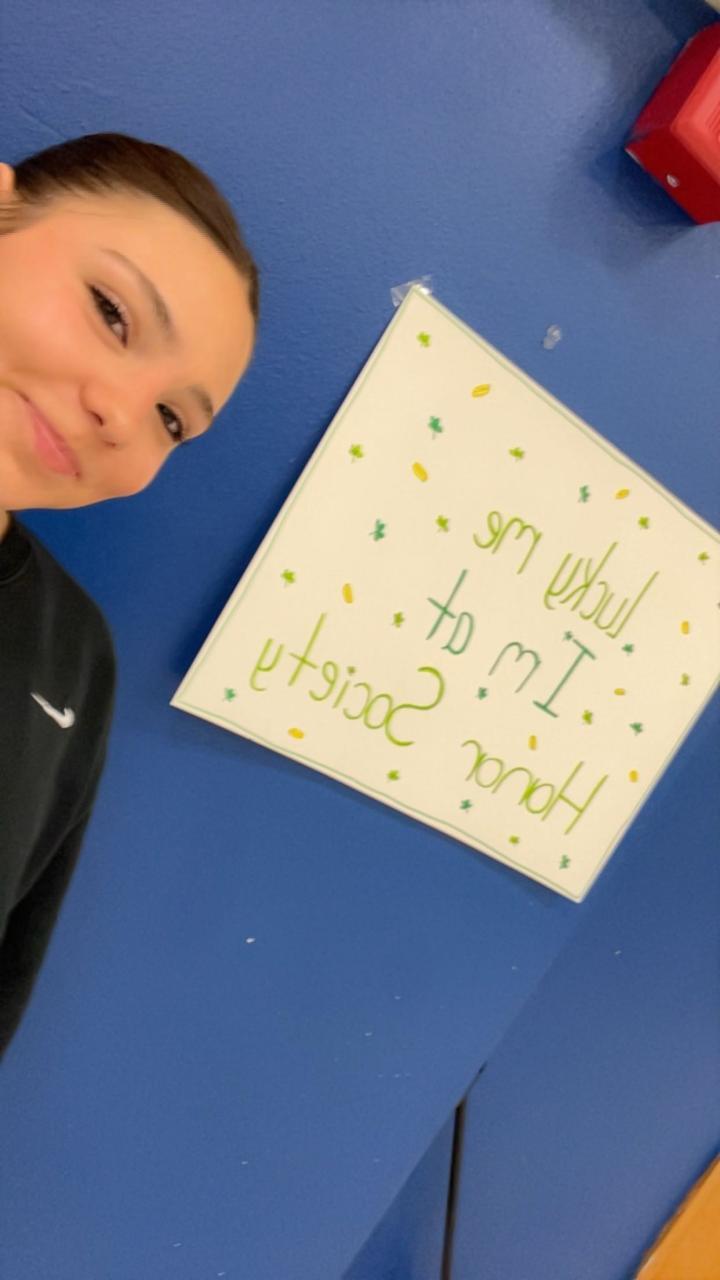 lucky me
I'm at
Honor Society